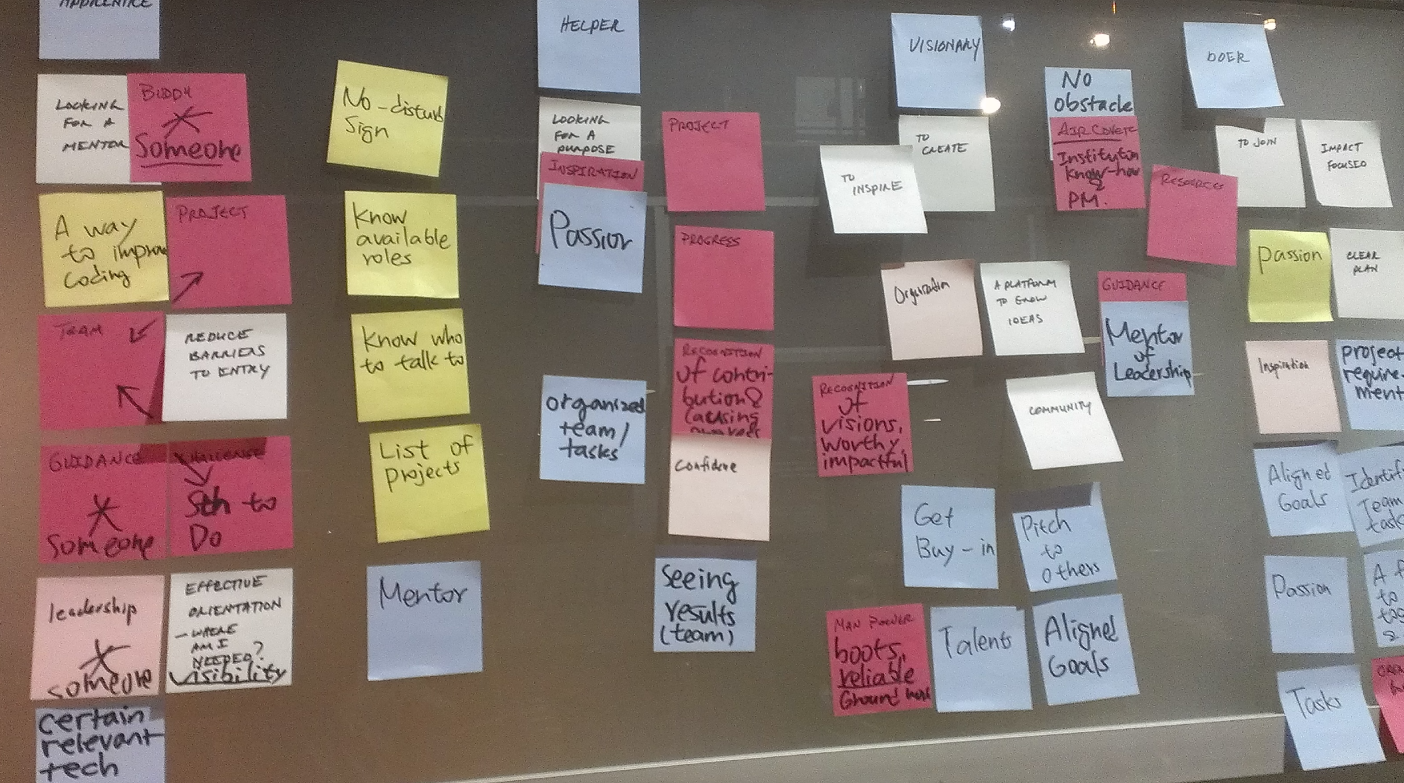 APPRENTICE
LOOKING
FOR A
MENTOR
BUDDY
Someone
A way
to improve
coding
PROJECT
TEAM
REDUCE
BARRIERS
TO ENTRY
GUIDANCE
Someone
CHALLENGE
Sth to
Do
leadership
someone
EFFECTIVE
ORIENTATION
- WHERE
AM I
NEEDED?
Visibility
certain
relevant
tech
No-disturb
Sign
Know
available
roles
Know who
to talk to
List of
projects
Mentor
HELPER
LOOKING
FOR A
PURPOSE
INSPIRATION
Passion
organized
team/
tasks
PROJECT
PROGRESS
RECOGNITION
of contri-
bution &
causing
Confidence
Seeing
results
(team)
VISIONARY
TO
CREATE
TO
INSPIRE
Organization
A PLATFORM
TO GROW
IDEAS
RECOGNITION
of
visions,
worthy
impactful
COMMUNITY
Get
Buy-in
Pitch
to
others
MAN POWER
boots,
reliable
Ground
Talents
Aligned
Goals
No
obstacle
AIR COVER
Institution
know-how
&
PM.
RESOURCES
GUIDANCE
Mentor
of
Leadership
DOER
TO JOIN
IMPACT
FOCUSED
Passion
CLEAR
PLAN
Inspiration
project
require-
ment
Aligned
Goals
Identif
Team
task
Passion
A f
to
tog
&
Tasks